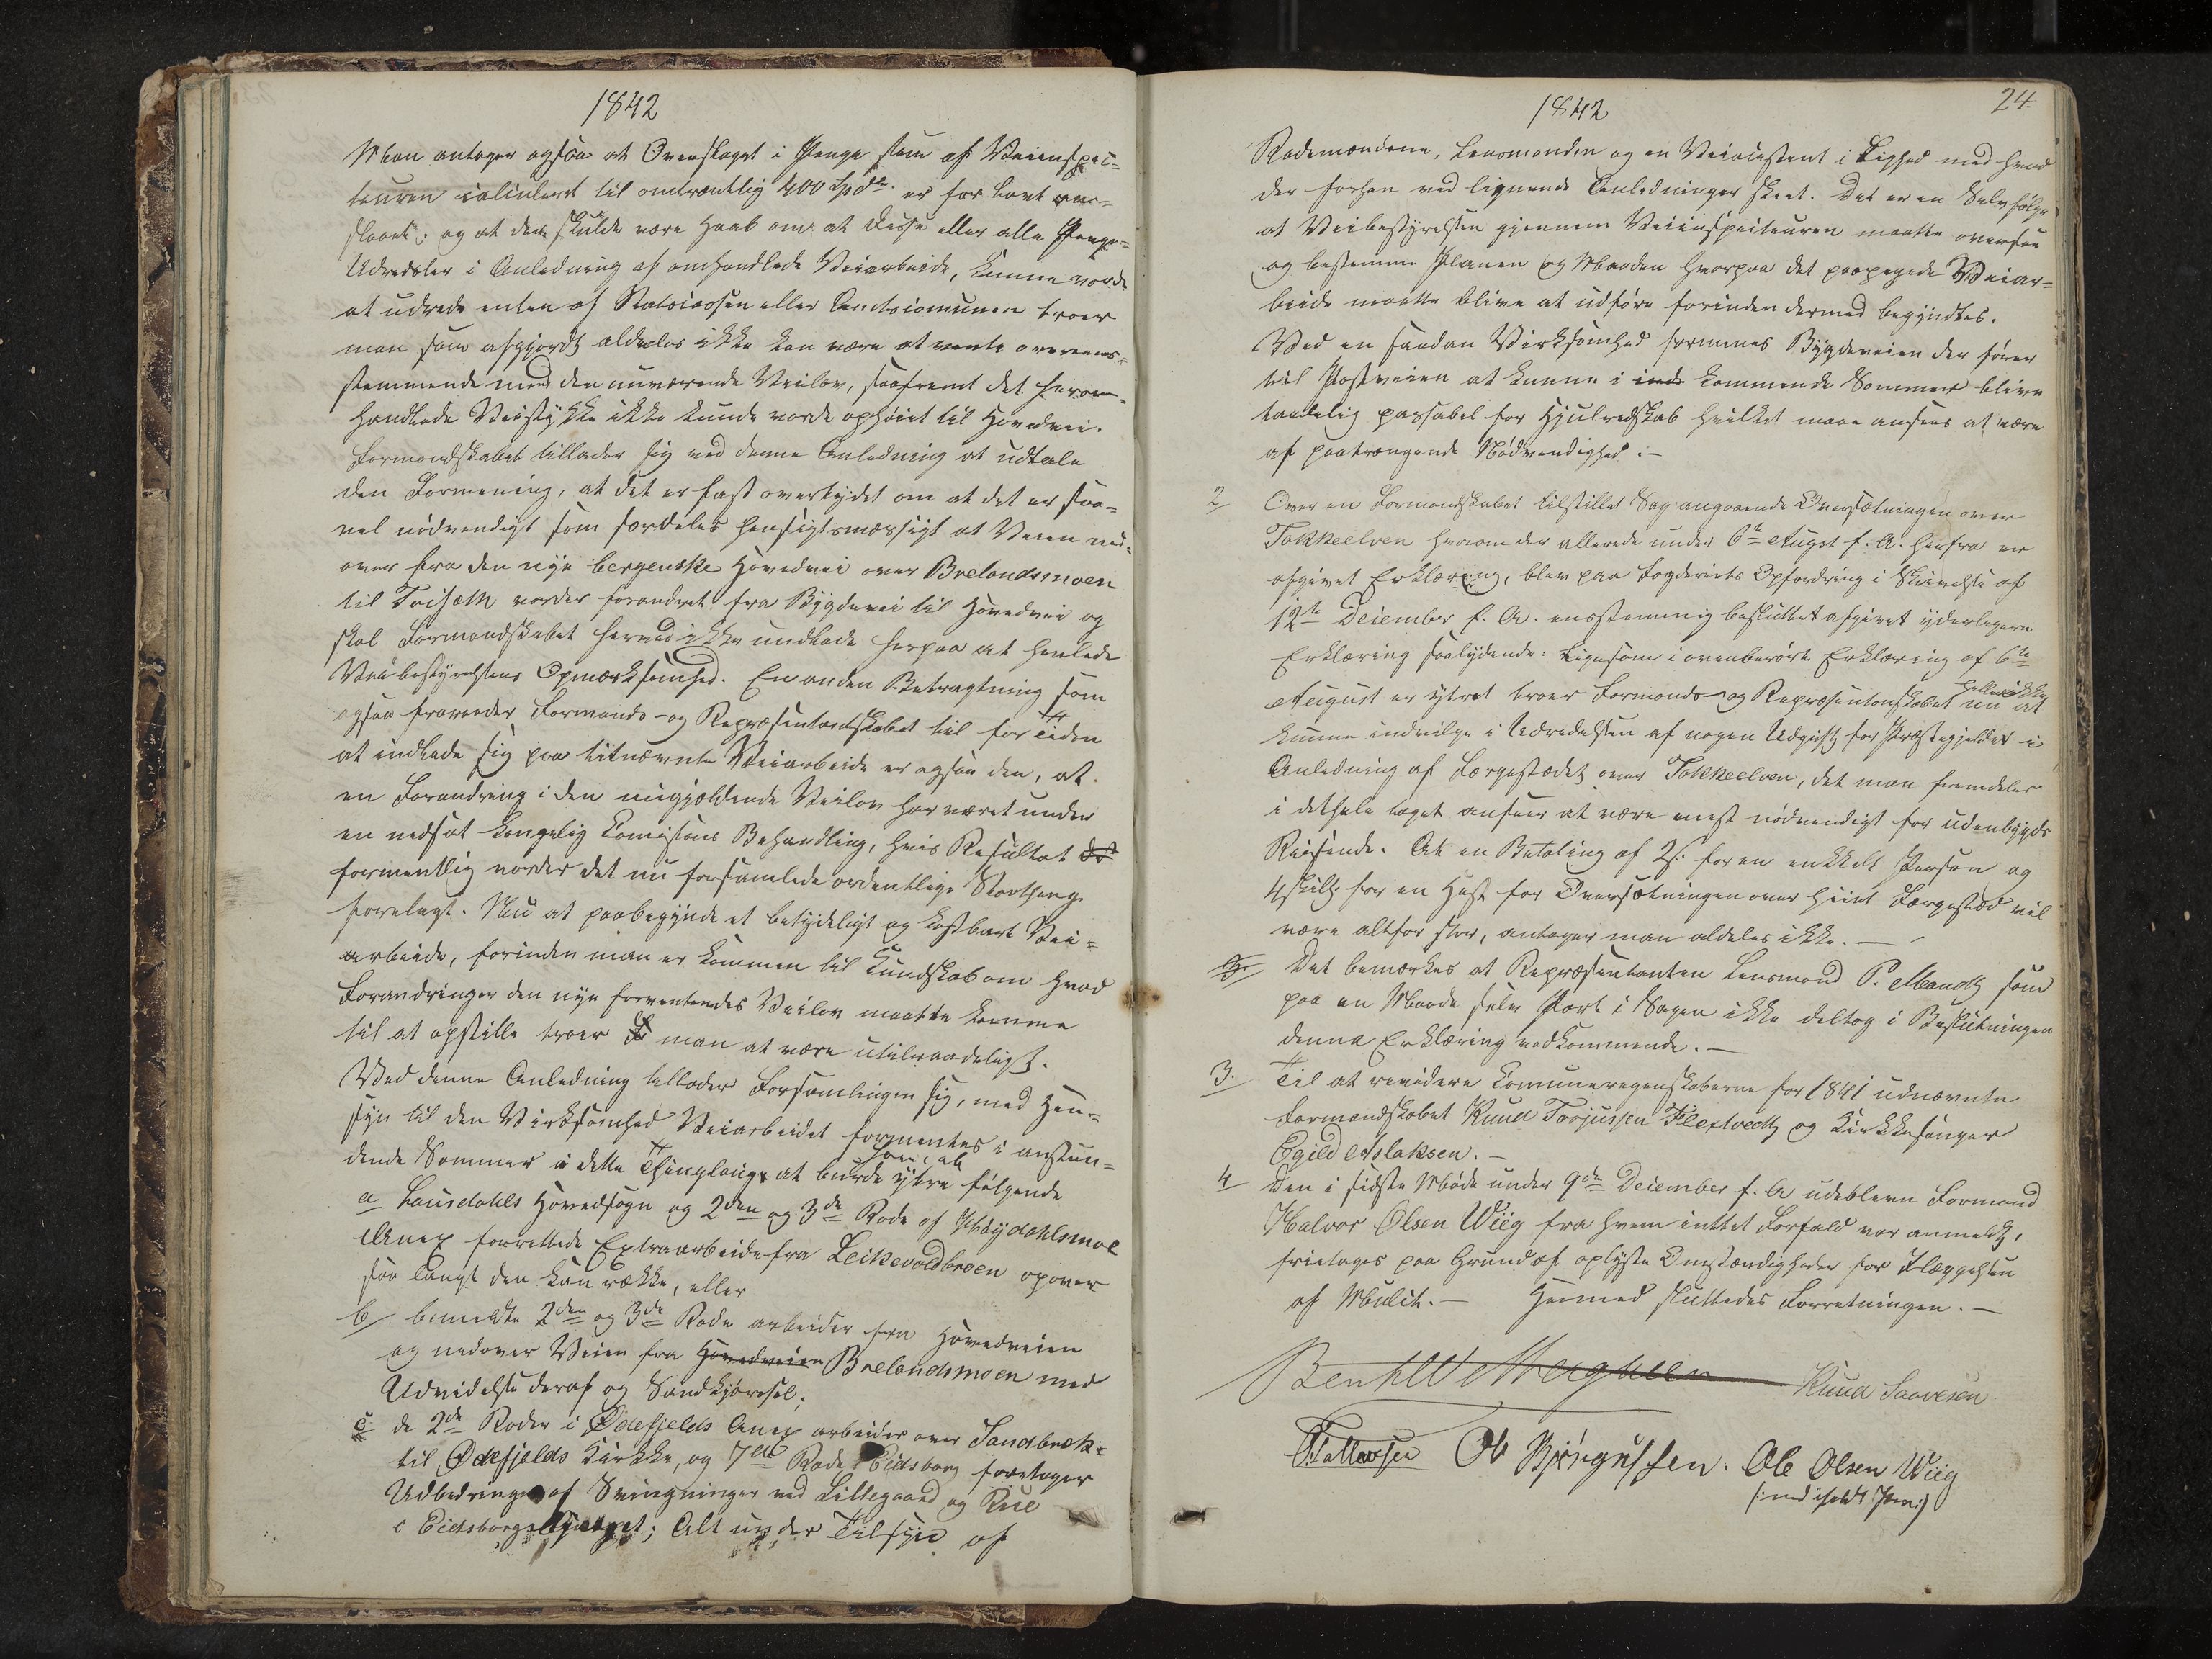 1842
Man antager ogsaa at Overslaget i Penge som af Veiinspec=
teuren calculeret til omtrentlig 400 Spdr. er for lavt an=
slaaet; og at der skulde være Haab om at disse eller alle Penge=
Udredsler i Anledning af omhandlede Veiarbeide, kunne vorde
at udrede enten af Statscassen eller Amtscommunen troer
man som afgjordt aldeles ikke kan være at vente overeens=
stemmende med den nuværende Veilov, saafremt det herom=
handlede Veistykke ikke kunde vorde ophøiet til Hovedvei.
Formandskabet tillader sig ved denne Anledning at udtale
den Formening, at det er fast overtydet om at det er saa=
vel nødvendigt som særdeles hensigtsmæssigt at Veien ned=
over fra den nye bergenske Hovedvei over Brelandsmoen
til Triseth vorder forandret fra Bygdevei til Hovedvei og
skal Formandskabet herved ikke undlade herpaa at henlede
Veibestyrelsens Opmærksomhed. En anden Betragtning som
ogsaa fraraader Formands- og Repræsentantskabet til for Tiden
at indlade sig paa titnævnte Veiarbeide er ogsaa den, at
en Forandring i den nugjældende Veilov har været under
en nedsat kongelig Comissions Behandling, hvis Resultat
formentlig vorder det nu forsamlede ordentlige Storthing
forelagt. Nu at paabegynde et betydeligt og kostbart Vei=
arbeide, forinden man er kommen til Kundskab om hvad
Forandringer den nye forventendes Veilov maatte komme
til at opstille troer man at være utilraadeligt.
Ved denne Anledning tillader Forsamlingen sig, med Hen=
syn til den Virksomhed Veiarbeidet formentes i anstun=
dende Sommer i dette Thinglaug at burde ytre følgende
a Laurdahls Hovedsogn og 2den og 3de Rode af Høydahlsmoe
Anex forrettede Extraarbeide fra Leikevoldbroen opover
saa langt den kan række, eller
b bemeldte 2den og 3de Rode arbeider fra Hovedveien
og nedover Veien fra Hovedveien Brelandsmoen med
Udvidelse deraf og Sandkjørsel;
c de 2de Roder i Ødefjelds Anex arbeider over Sandbræk=
til Ødefjelds Kirkke, og 7de Rode Eidsborg foretager
Udbedringe af Svingninger ved Lillegaard og Rue
i Eidsborg; Alt under Tilsyn af
1842
24.
Rodemændene, Lensmanden og en Veiassistent i Lighed med hvad
der forhen ved lignende Anledninger skeet. Det er en Selvfølge
at Veibestyrelsen gjennem Veiinspecteuren maatte oversee
og bestemme Planen og Maaden hvorpaa det paapegede Veiar=
beide maatte blive at udføre forinden dermed begyndtes.
Ved en saadan Virksomhed formenes Bygdeveien der fører
til Postveien at kunne i kommende Sommer blive
taalelig passabel for Hjulredskab hvilket maae ansees at være
af paatrængende Nødvendighed.–
2 Over en Formandskabet tilstillet Sag angaaende Oversætningen over
Tokkeelven hvorom der allerede under 6te Augst f. A. herfra er
afgivet Erklæring, blev paa Fogderiets Opfordring i Skrivelse af
12te December f. A. eenstemmig besluttet afgivet yderligere
Erklæring saalydende: Ligesom i ovenberørte Erklæring af 6te
August er ytret troer Formands- og Repræsentanskabet heller ikke nu at
kunne indvilge i Udredelsen af nogen Udgift for Præstegjeldet i
Anledning af Færgestedet over Tokkeelven, det man fremdeles
i det hele taget anseer at være mest nødvendigt for udenbygds
Reisende. At en Betaling af 2s. for en enkkelt Person og
4 skill. for en Hest for Oversætningen over hiint Færgested vil
være altfor stor, antager man aldeles ikke.—
Det bemærkes at Repræsentanten Lensmand P. Mandt som
paa en Maade selv Part i Sagen ikke deltog i Beslutningen
denne Erklæring vedkommende.—
3. Til at revidere Comuneregnskaberne for 1841 udnævnte
Formandskabet Knud Torjussen Flextvedt og Kirkkesanger
Egild Aslaksen.–
4 Den i sidste Møde under 9de December f. A udeblevne Formand
Halvor Olsen Wiig fra hvem inttet Forfald var anmeldt,
frietages paa Grund af oplyste Omstændigheder for Ilæggelsen
af Mulct.— Hermed sluttedes Forretningen.—
Knud Saavesen
Ole Olsen Wiig
(: med iholdt Pen :)